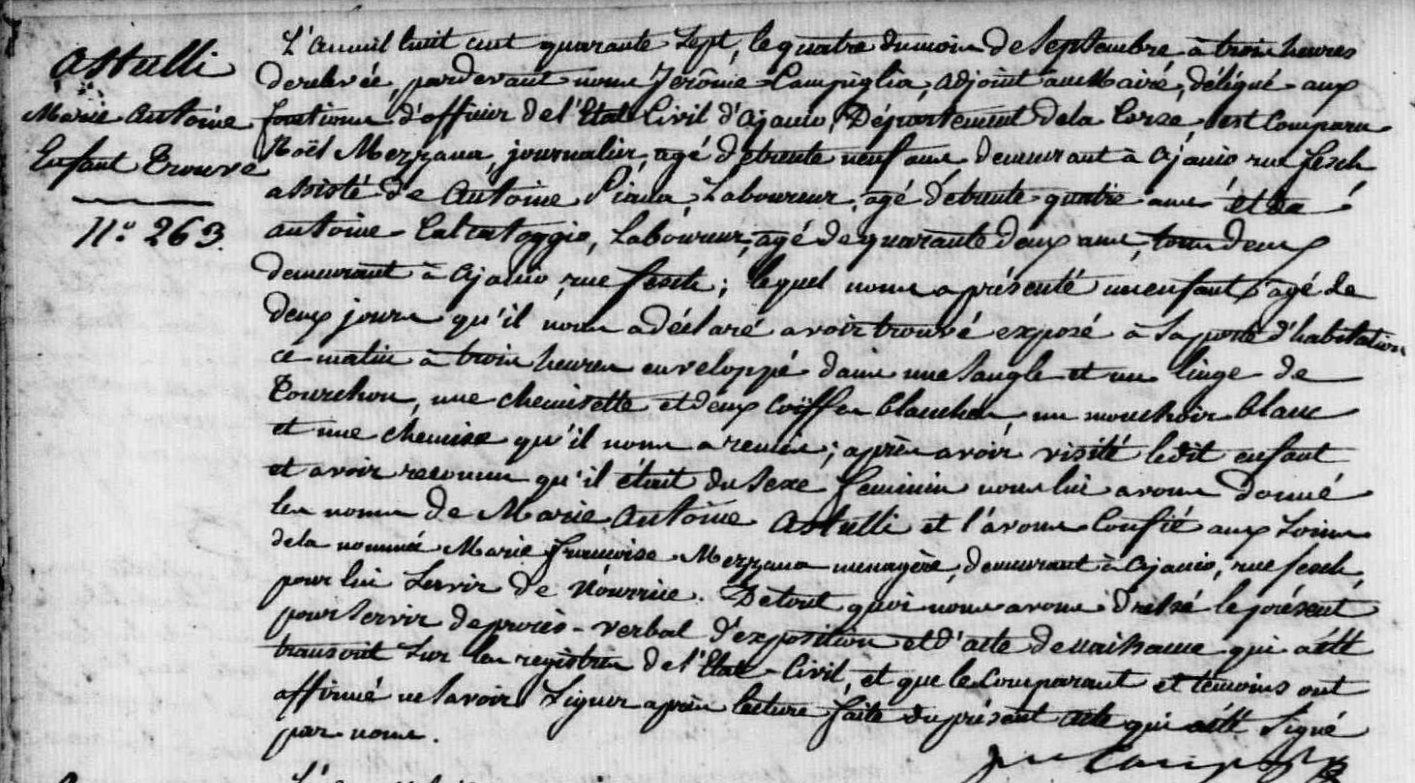 Astulli
Marie Antoine
Enfant Trouvé
N.° 263.
L'an mil huit cent quarante Sept, le quatre du mois de Septembre à trois heures
de relevée, pardevant nous Jerôme Campiglia, adjoint au Maire, délégué aux
fonctions d'officier de l'Etat Civil d'Ajaccio, Département de la Corse, est Comparu
Noël Mezzana, journalier, agé de trente neuf ans demeurant à Ajaccio rue fesch
assisté de Antoine Laboureur, agé de trente quatre ans et de
antoine Calcatoggio, Laboureur, agé de quarante deux ans, tous deux
demeurant à Ajaccio, rue fesch; lequel nous a présenté un enfant agé de
deux jours qu'il nous a déclaré avoir trouvé exposé à sa porte d'habitation
ce matin à trois heures enveloppé dans une Sangle et un linge de
une chemisette et deux Coïffes blanches, un mouchoir blanc
et une chemise qu'il nous a remis; après avoir visité ledit enfant
et avoir reconnu qu'il était du Sexe feminin nous lui avons donné
les noms de Marie Antoine Astulli et l'avons Confié aux Soins
de la nommée Marie françoise Mezzana menagère, demeurant à Ajaccio, rue fesch,
pour lui Servir de Nourrice. De tout quoi nous avons dressé le présent
pour Servir de procès-verbal d'exposition et d'acte de naissance qui a été
transcrit Sur les registres de l'Etat-Civil, et que le Comparant et témoins ont
affirmé ne Savoir Signer après lecture faite du présent acte qui a été Signé
par nous.